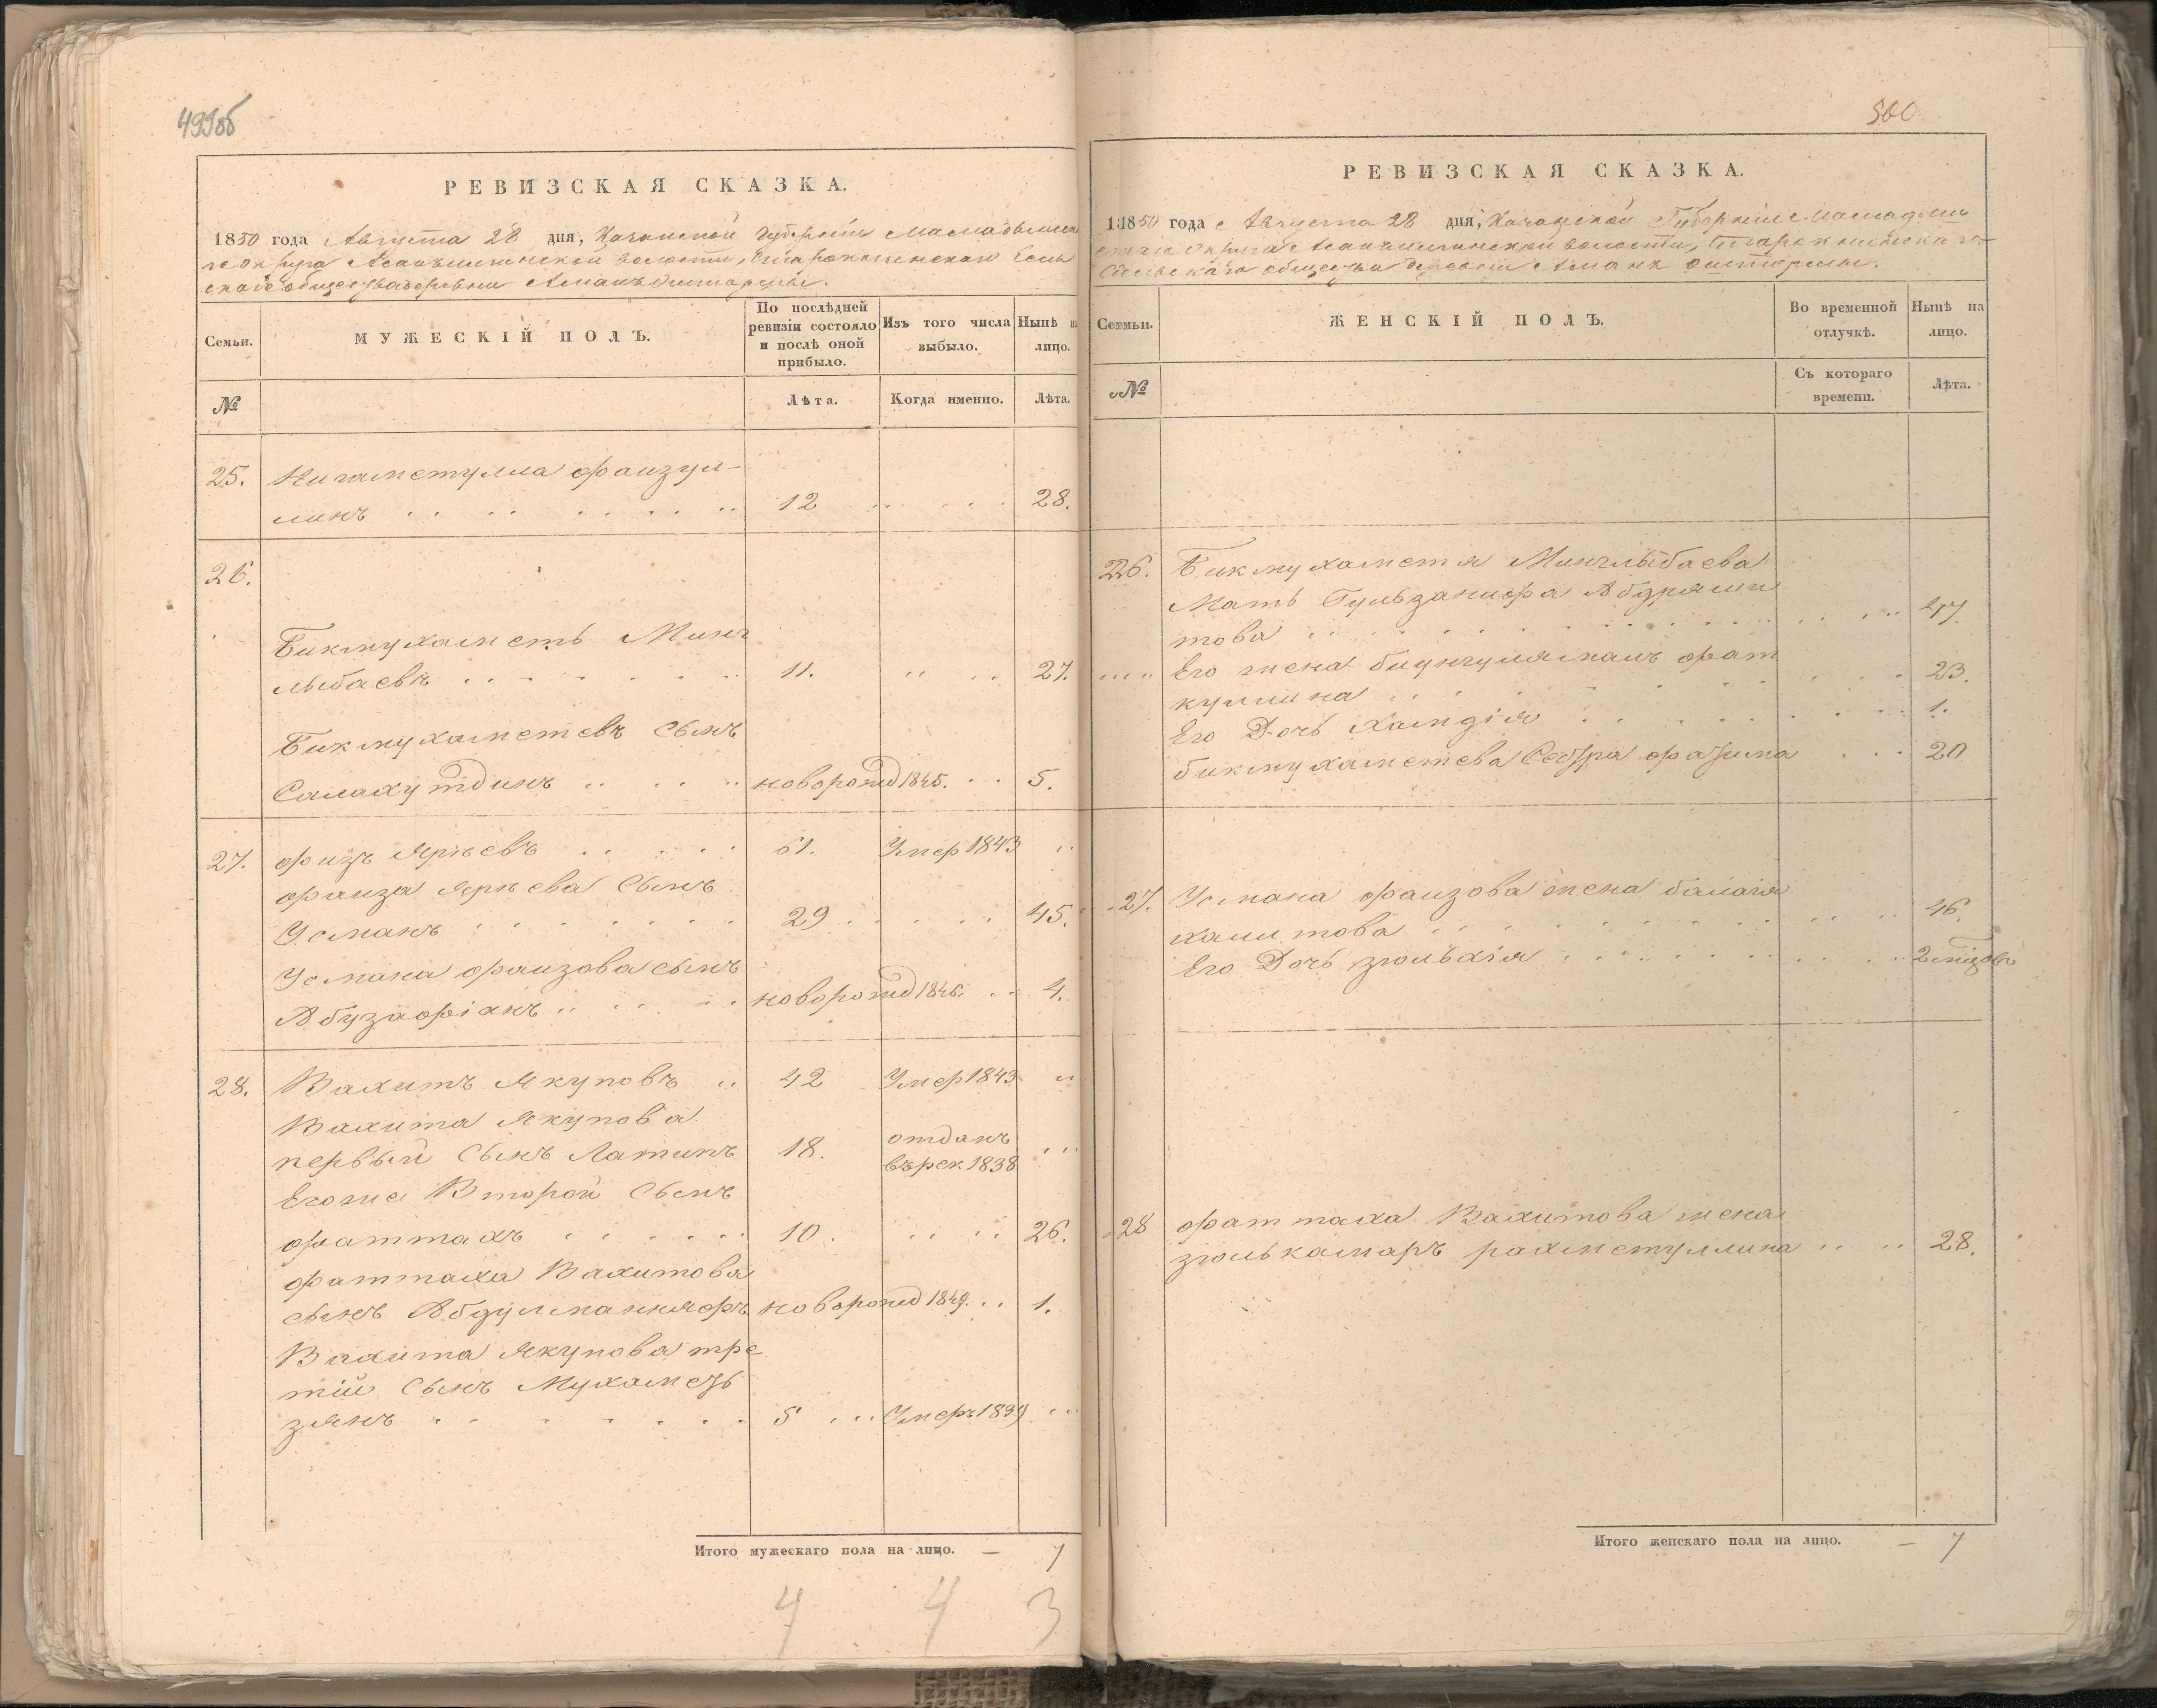 499об
РЕВИЗСКАЯ СКАЗКА.
1850 года Августа 28 дня, Казанской губернии Мамадышска
го округа Асанъилгинской волости, Старокнинскаго Сель
скаго общества деревни Аманъ Оштормы.
Семьи.
МУЖЕСКІЙ ПОЛЪ.
По послѣдней
ревизіи состояло
и послѣ оной
прибыло.
Изъ того числа
выбыло.
Нынѣ н
лицо.
№
Лѣта.
Когда именно.
Лѣта.
25. Нигаметулла фаизул-
линъ 12 28.
26.
Бикмухаметь Минг
лыбаевъ 11. 27.
Бикмухаметевъ Сынъ
Салахутдинъ новорожд 1845. 5.
27. фаизъ Яркевъ 61. Умер 1843
фаиза Яркева Сынъ
Усманъ 29 45.
Усмана фаизова сынъ
Абузафіанъ новорожд 1846. 4.
28. Вахитъ Якуповъ 42 Умер 1843
Вахита Якупова
первый Сынъ Латипъ 18. отданъ
въ рек. 1838
Егоже Второй Сынъ
фаттахъ 10. 26.
фаттаха Вахитова
сынъ Абдулманнафъ новорожд 1849. 1.
Вахита Якупова тре
тій Сынъ Мухаметь
зянъ 5 Умеръ 1839
Итого мужескаго пола на лицо. — 7
4 4 3
500
РЕВИЗСКАЯ СКАЗКА.
1850 года Августа 28 дня, Казанской Губерніи Мамадыш
скаго Округа Асанъилгинской волости, Старокнинскаго
Сельскаго общества деревни Аманъ Оштормы.
Семьи.
ЖЕНСКІЙ ПОЛЪ.
Во временной
отлучкѣ.
Нынѣ на
лицо.
№
Съ котораго
времени.
Лѣта.
26. Бикмухаметя Минглыбаева
Мать Гульзанифа Абдряши
това 47.
Его жена биункулямалъ фат
куллина 23.
Его Дочь Хамдія 1.
бикмухаметева Сестра фатима 20
27. Усмана фаизова жена балагия
хамитова 46.
Его Дочь зюльхія 2 мѣсяцовъ
28 фаттаха Вахитова жена
зюлькамаръ рахметуллина 28.
Итого женскаго пола на лицо. — 7